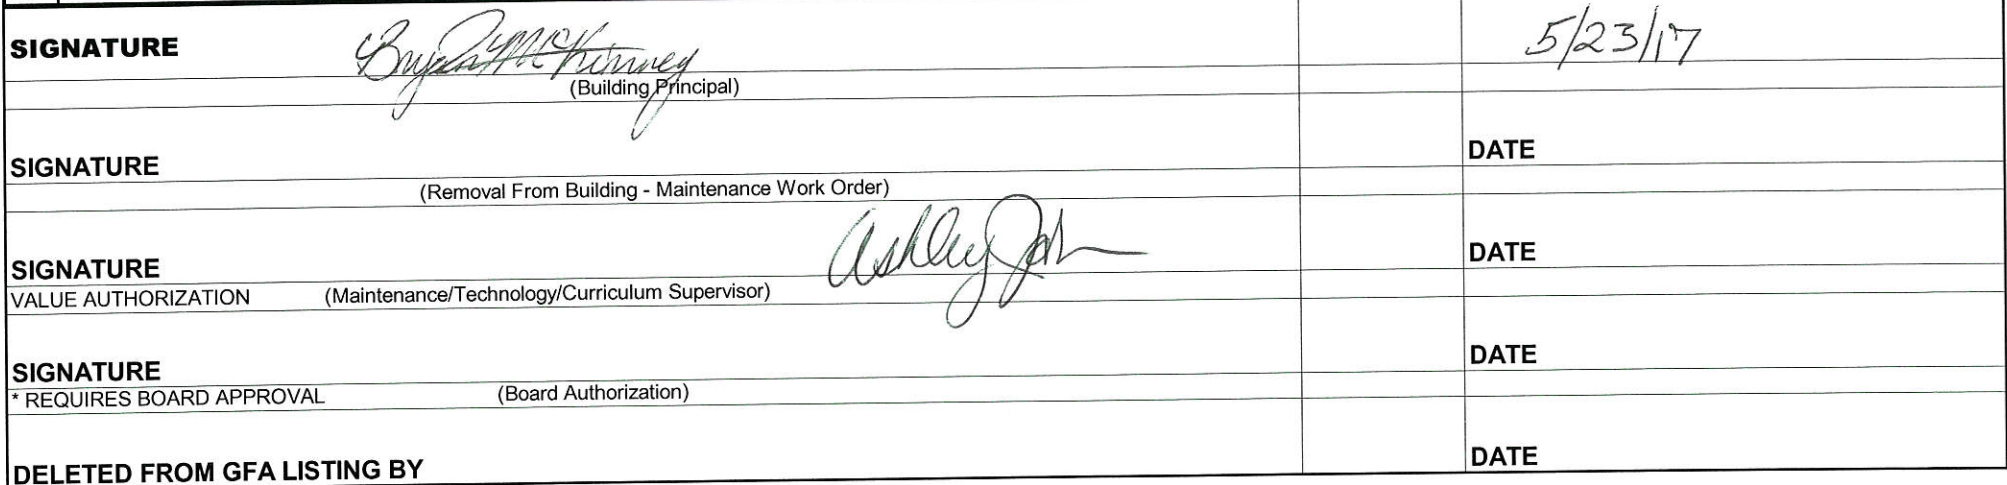 SIGNATURE Bryan McKinney 5/23/17
(Building Principal)
SIGNATURE DATE
(Removal From Building - Maintenance Work Order)
SIGNATURE Ashley DATE
VALUE AUTHORIZATION (Maintenance/Technology/Curriculum Supervisor)
SIGNATURE DATE
* REQUIRES BOARD APPROVAL (Board Authorization)
DELETED FROM GFA LISTING BY DATE